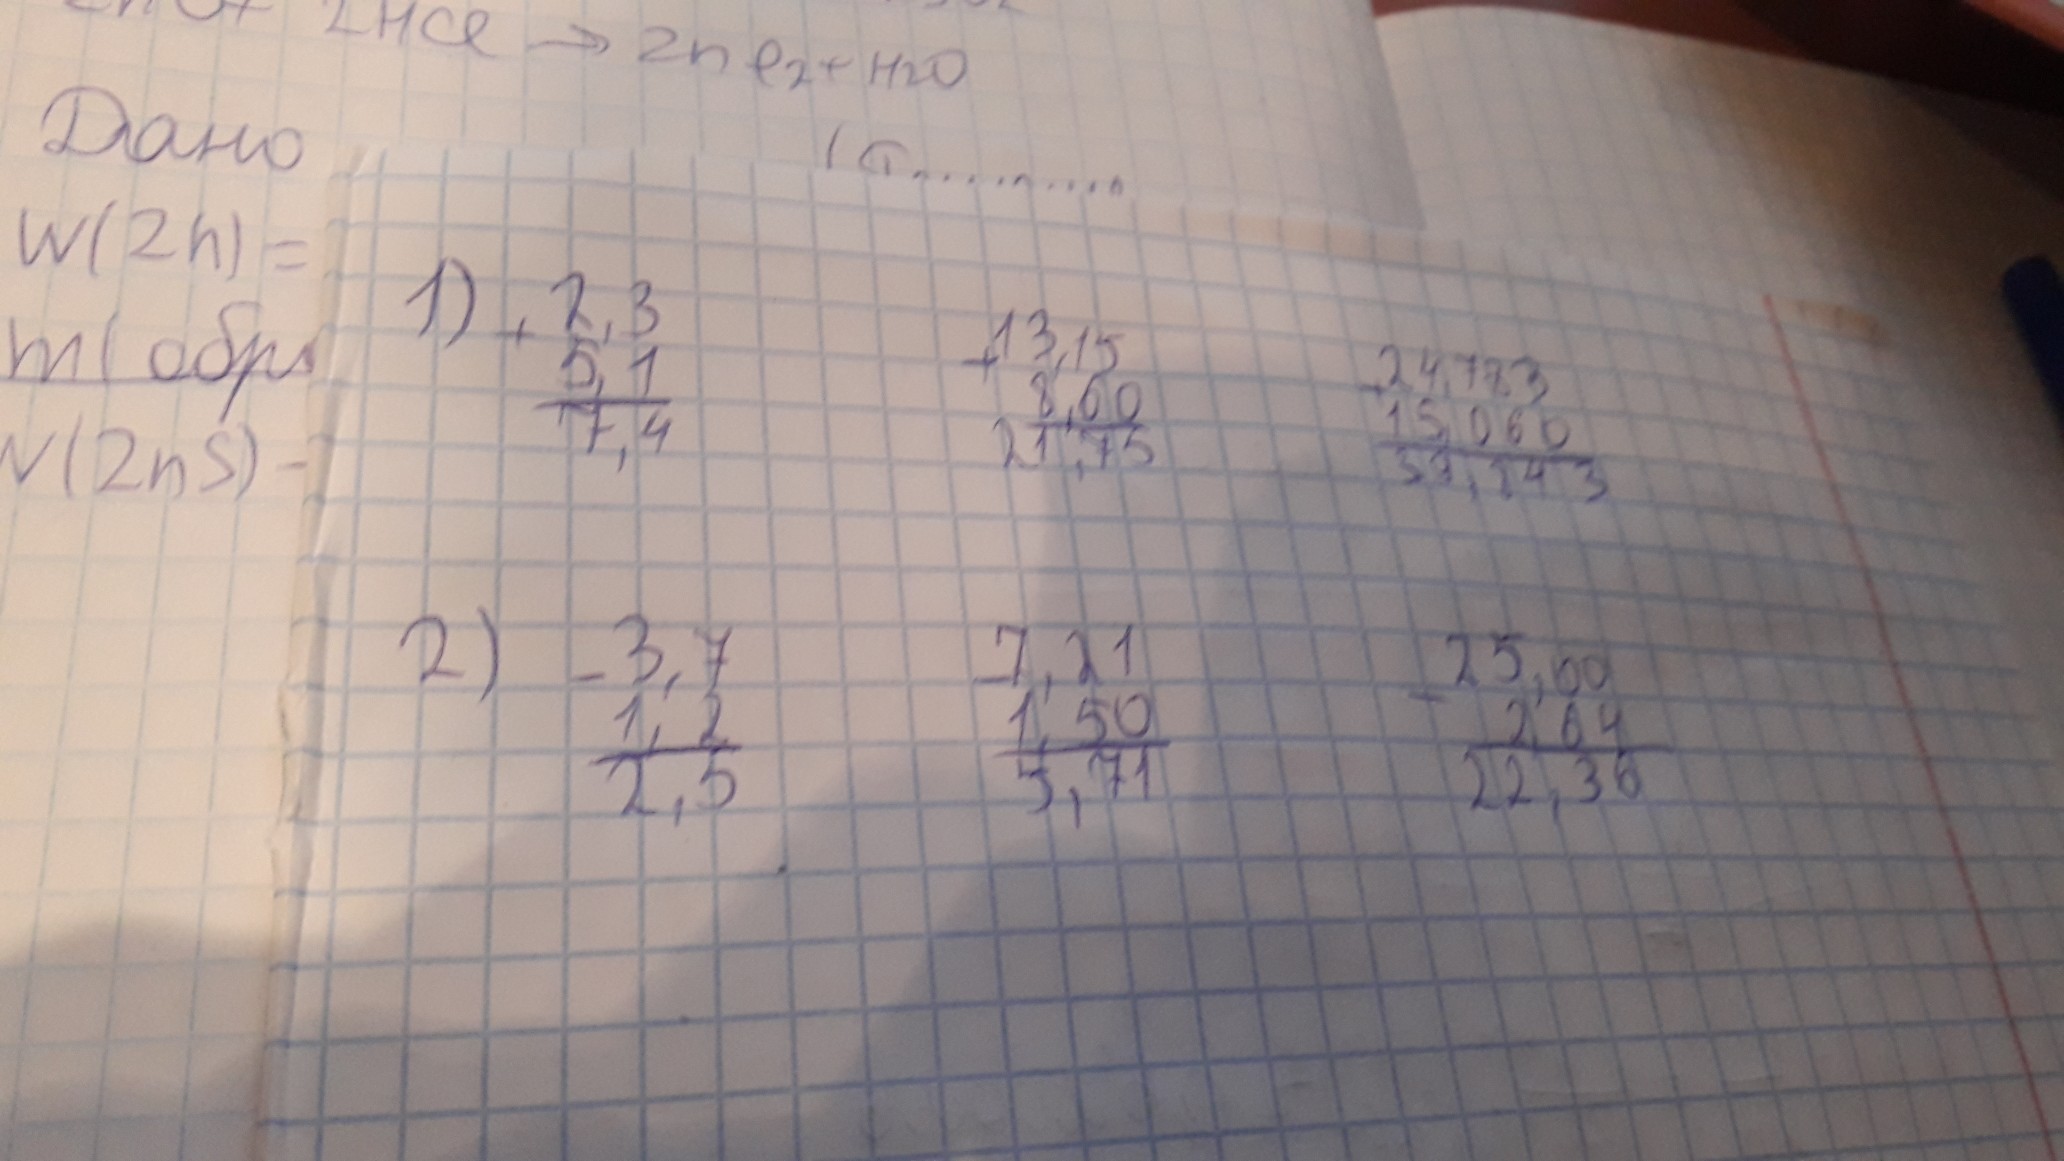 2HCl → Zn Cl2 + H2O
Дано
W(Zn) =
m(обр
N(ZnS) -
1) + 2,3
5,1
7,4
+ 13,15
8,60
21,75
15,060
2) - 3,7
1,2
2,5
- 7,21
1,50
5,71
- 25,00
2,64
22,36